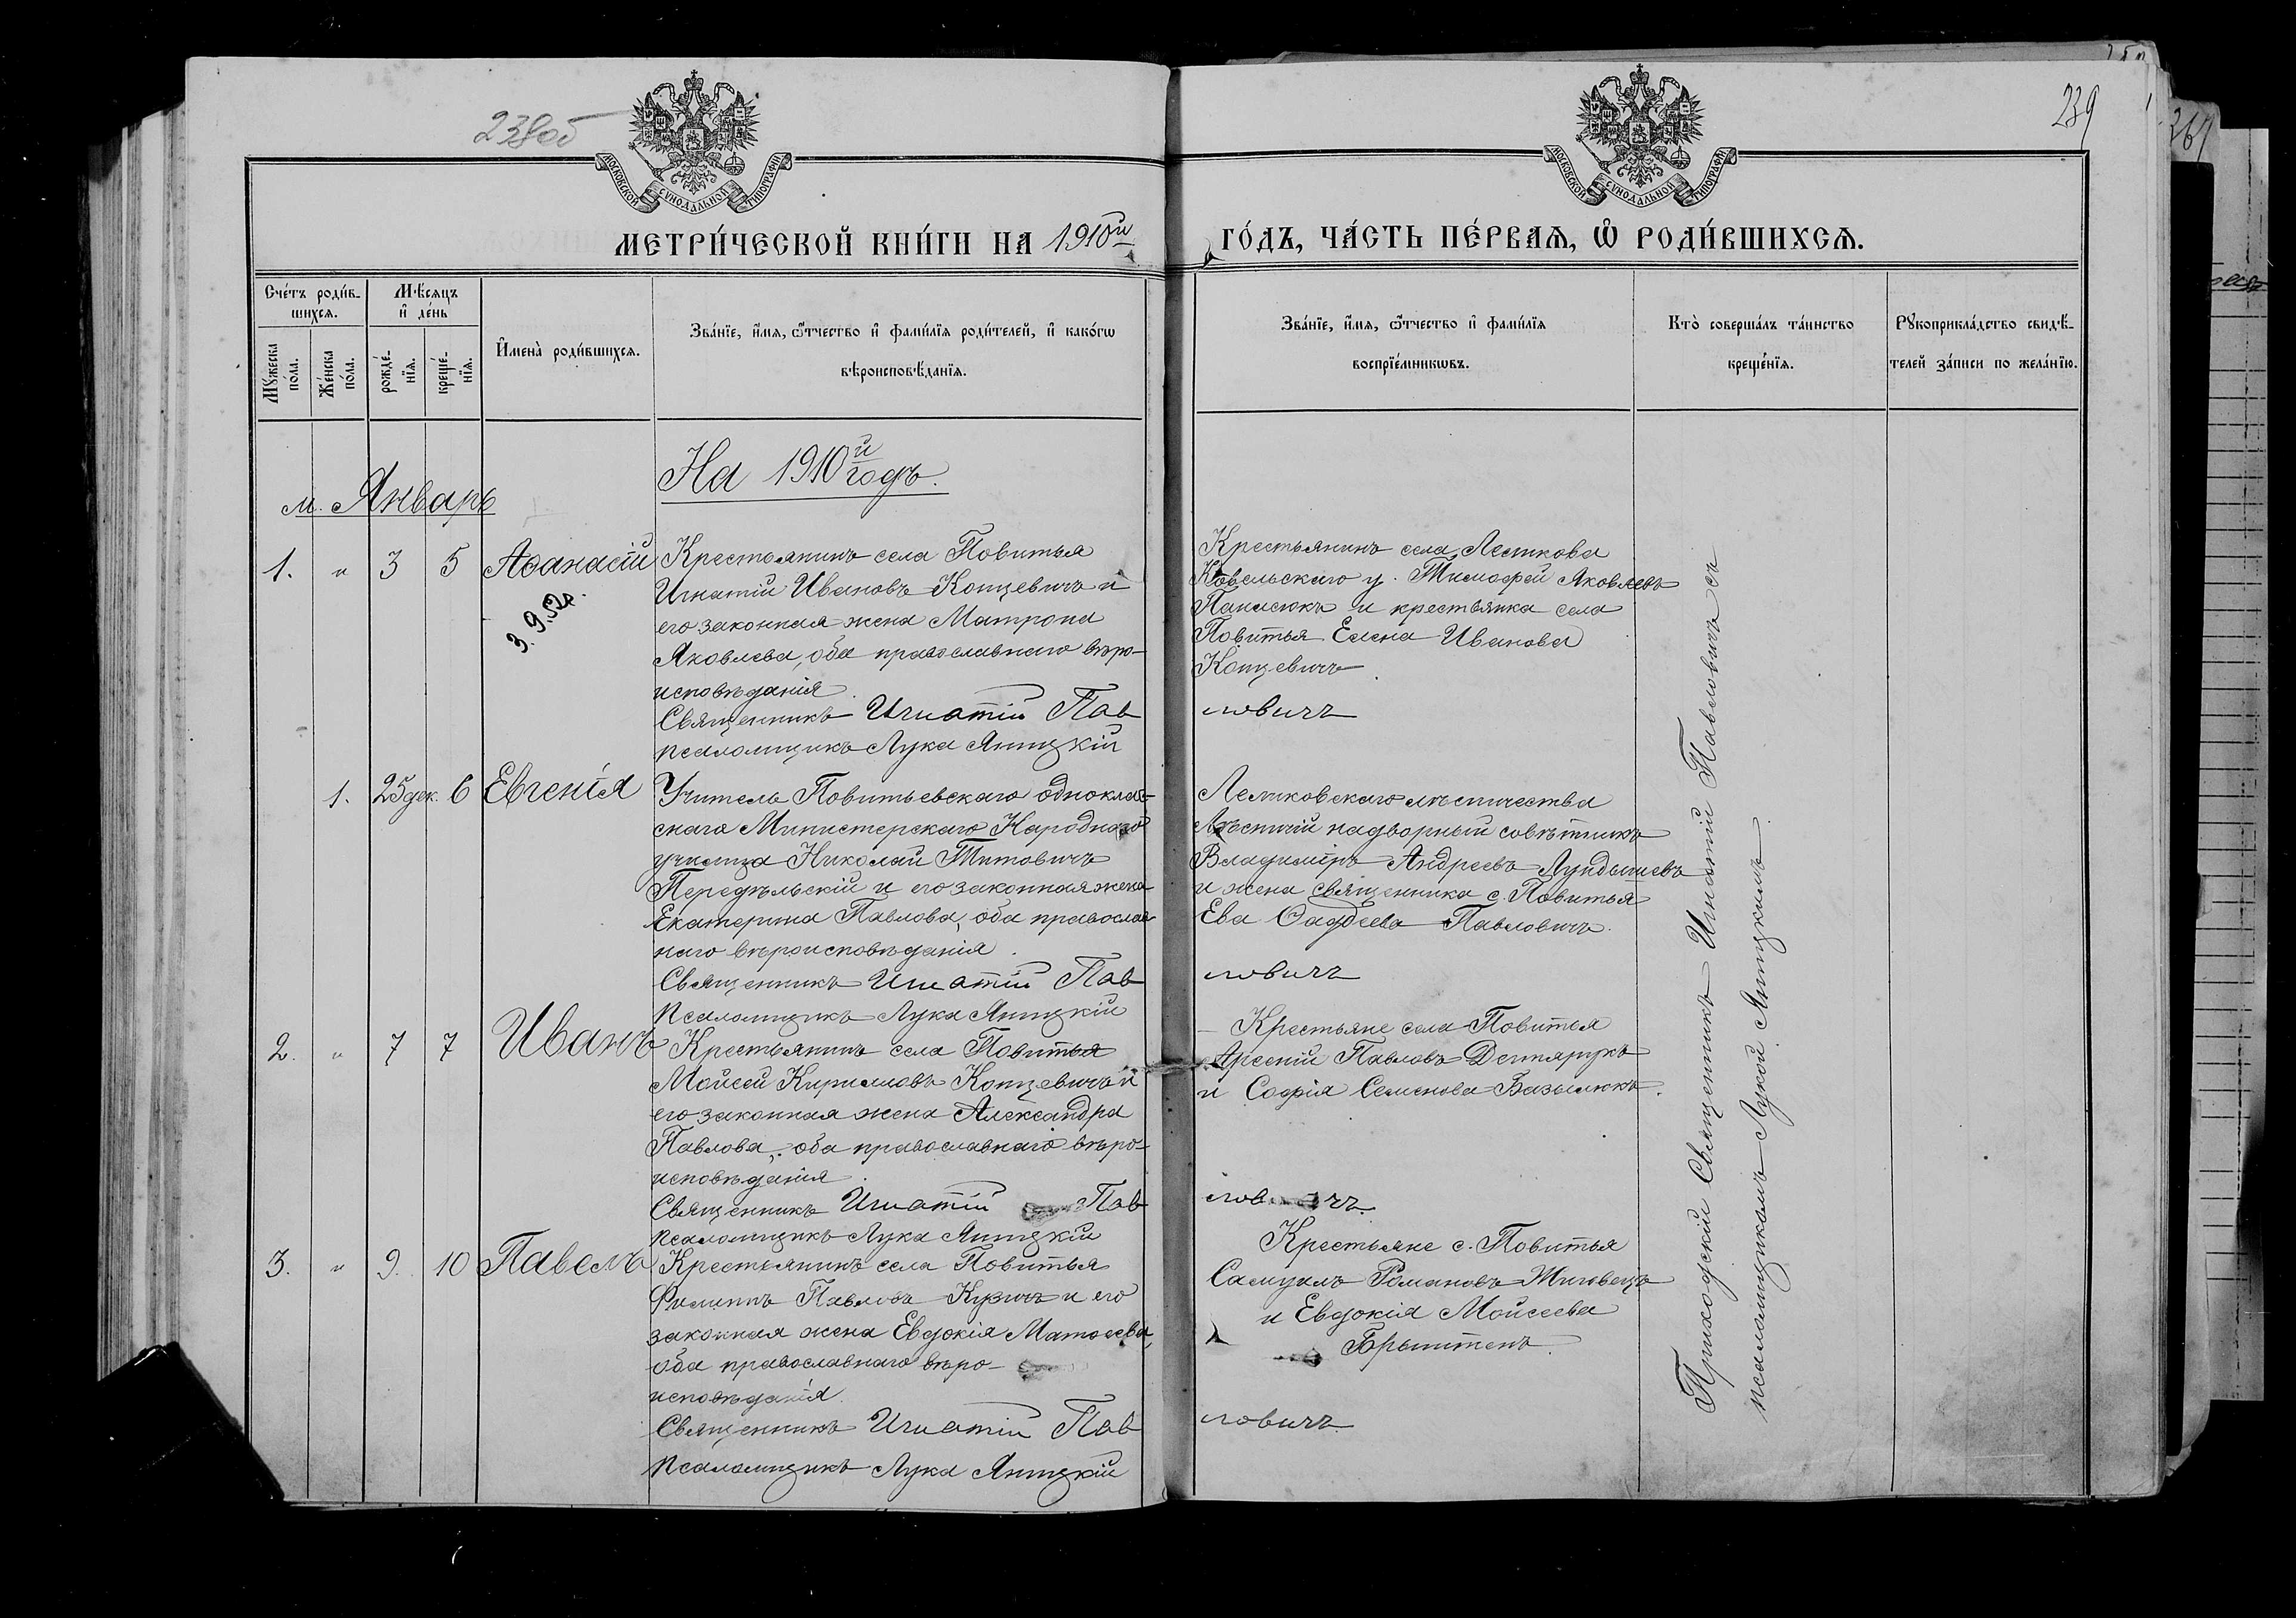 238об
239
МОСКОВСКОЙ СѴНОДАЛЬНОЙ ТИПОГРАФІИ
МОСКОВСКОЙ СѴНОДАЛЬНОЙ ТИПОГРАФІИ
МЕТРИ́ЧЕСКОЙ КНИ́ГИ НА 1910й
ГО́ДЪ, ЧА́СТЬ ПЕ́РВАѦ, Ѽ РОДИ́ВШИХСѦ.
Сче́тъ роди́в-
шихсѧ.
Мѣ́сѧцъ
и҆ де́нь
Мꙋ́жеска
по́ла.
Же́нска
по́ла.
рожде́-
нїѧ.
креще́-
нїѧ.
И҆мена̀ роди́вшихсѧ.
Зва́нїе, и҆́мѧ, ѻ҆́тчество и҆ фами́лїѧ роди́телей, и҆ како́гѡ
вѣроисповѣ́данїѧ.
Зва́нїе, и҆́мѧ, ѻ҆́тчество и҆ фами́лїѧ
воспрїе́мникѡвъ.
Кто̀ соверша́лъ та́инство
креще́нїѧ.
Рꙋкоприкла́дство свидѣ́-
телей за́писи по жела́нїю.
На 1910й годъ.
м. Январь
1. " 3 5 Аѳанасій
3.9.52г.
Крестьянинъ села Повитья
Игнатій Ивановъ Концевичъ и
его законная жена Матрона
Яковлева, оба православнаго веро-
исповѣданія.
Священникъ Игнатій Пав
псаломщикъ Лука Яницкій
Крестьянинъ села Леликова
Кобельскаго у. Тимофей Яковлевъ
Панасюкъ и крестьянка села
Повитья Елена Иванова
Концевичъ.
ловичъ
1. 25 дек. 6 Евгенія
Учитель Повитьевскаго одноклас-
снаго Министерскаго Народнаго
училища Николай Титовичъ
Передѣльскій и его законная жена
Екатерина Павлова, оба православ-
наго вѣроисповѣданія.
Священникъ Игнатій Пав
Псаломщикъ Лука Яницкій
Леликовскаго лѣсничества
Лѣсничій надворный совѣтникъ
Владиміръ Андреевъ Лундышевъ
и жена священника с. Повитья
Ева Фаддеева Павловичъ.
ловичъ
2. " 7 7 Иванъ
Крестьянинъ села Повитья
Моисей Кирилловъ Концевичъ и
его законная жена Александра
Павлова, оба православнаго вѣро-
исповѣданія.
Священникъ Игнатій Пав
псаломщикъ Лука Яницкій
Крестьяне села Повитья
Арсеній Павловъ Дегтярукъ
и Софія Семенова Базылюкъ.
ловичъ.
3. " 9. 10 Павелъ
Крестьянинъ села Повитья
Филиппъ Павловъ Кузичъ и его
законная жена Евдокія Матѳеева,
оба православнаго вѣро-
исповѣданія.
Священникъ Игнатій Пав
Псаломщикъ Лука Яницкій
Крестьяне с. Повитья
Самуилъ Романовъ Жиговецъ
и Евдокія Моисеева
Брынтенъ.
ловичъ.
Приходскій Священникъ Игнатій Павловичъ съ
псаломщикомъ Лукой Яницкимъ.